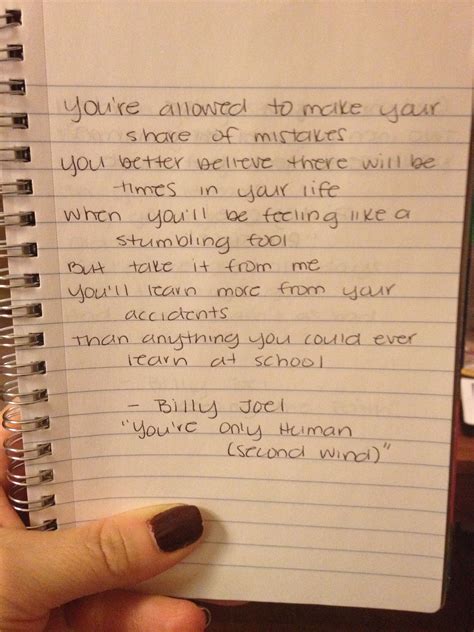 you're allowed to make your
share of mistakes
you better believe there will be
times in your life
when you'll be feeling like a
stumbling fool
But take it from me
you'll learn more from your
accidents
Than anything you could ever
learn at school
- Billy Joel
"you're only Human
(second wind)"